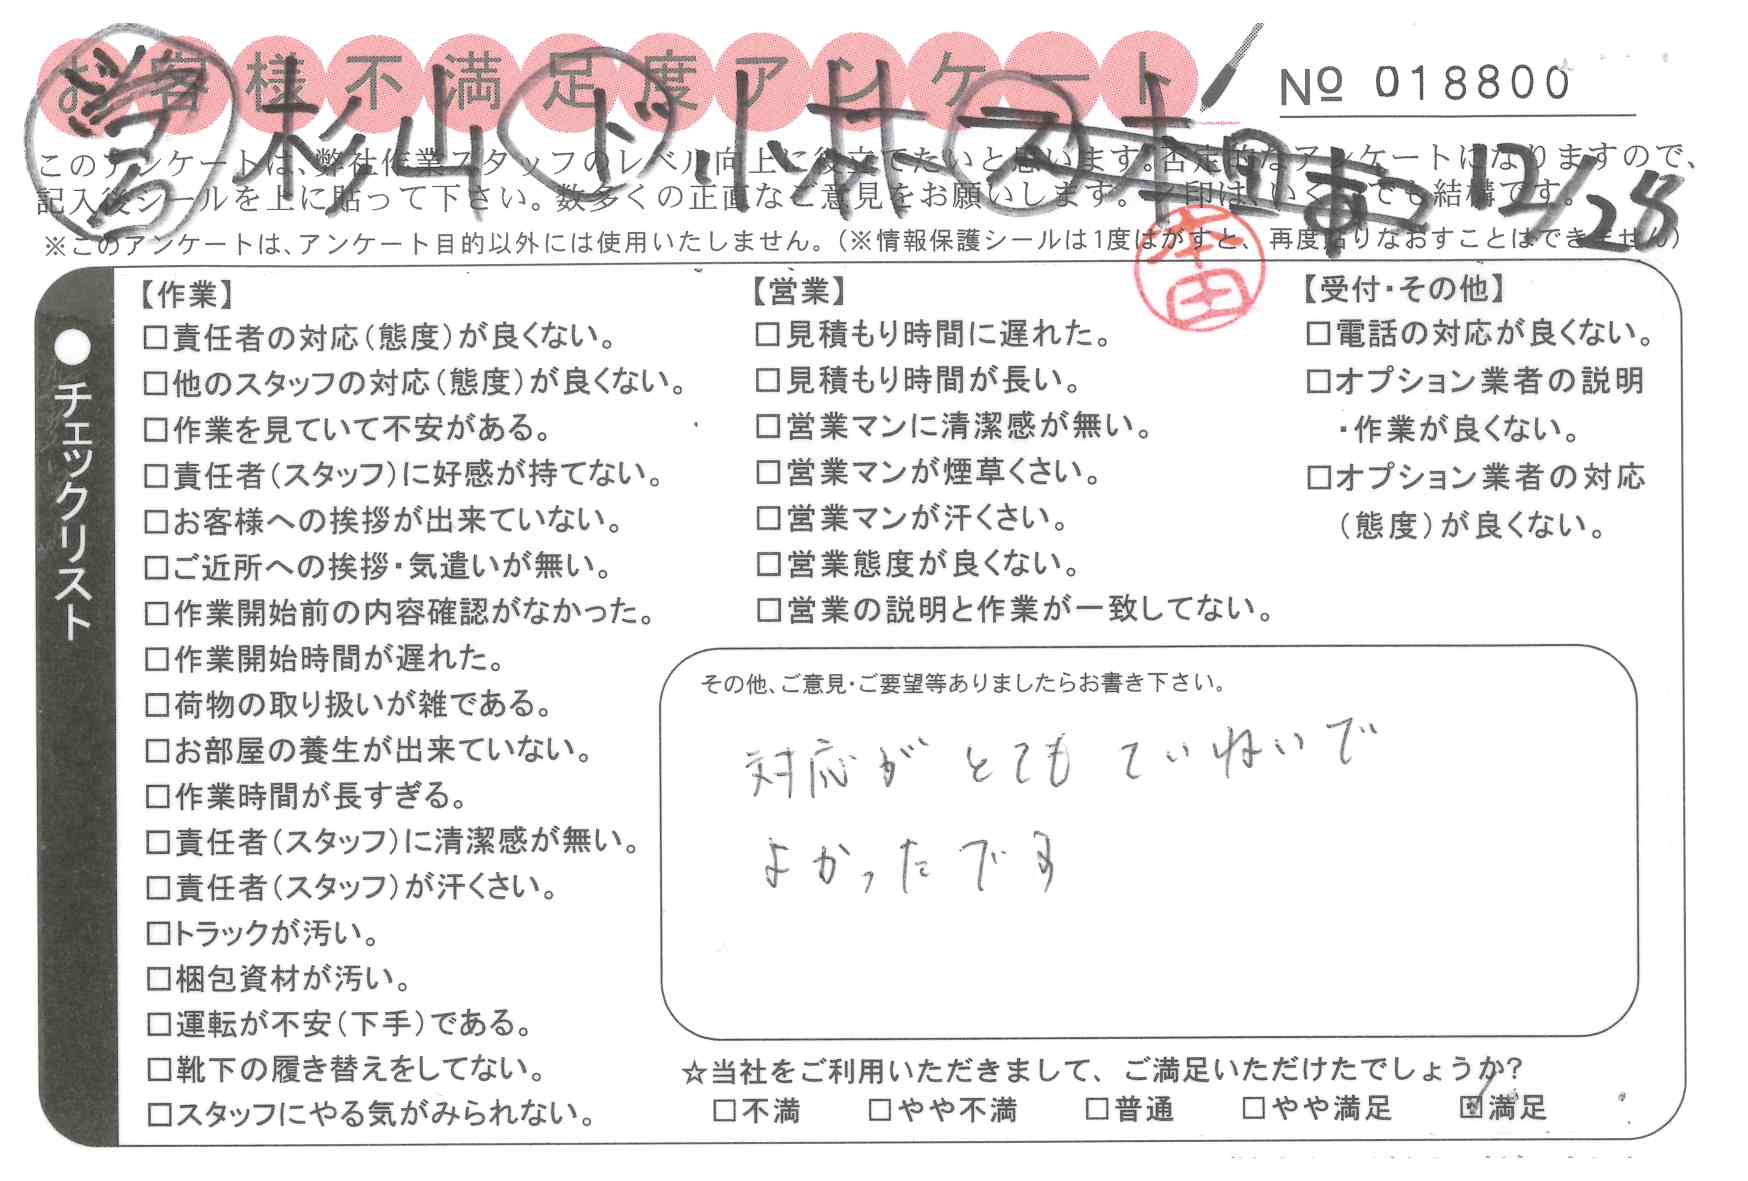 お客様不満足度アンケート
№ 018800
杉山 ド 川井 ス 本田 12/28
このアンケートは、弊社作業スタッフのレベル向上に役立てたいと思います。否定的なアンケートになりますので、
記入後シールを上に貼って下さい。数多くの正直なご意見をお願いします。✓印は、いくつでも結構です。
※このアンケートは、アンケート目的以外には使用いたしません。(※情報保護シールは1度はがすと、再度貼りなおすことはできません)
本田
●チェックリスト
【作業】
□責任者の対応(態度)が良くない。
□他のスタッフの対応(態度)が良くない。
□作業を見ていて不安がある。
□責任者(スタッフ)に好感が持てない。
□お客様への挨拶が出来ていない。
□ご近所への挨拶・気遣いが無い。
□作業開始前の内容確認がなかった。
□作業開始時間が遅れた。
□荷物の取り扱いが雑である。
□お部屋の養生が出来ていない。
□作業時間が長すぎる。
□責任者(スタッフ)に清潔感が無い。
□責任者(スタッフ)が汗くさい。
□トラックが汚い。
□梱包資材が汚い。
□運転が不安(下手)である。
□靴下の履き替えをしてない。
□スタッフにやる気がみられない。
【営業】
□見積もり時間に遅れた。
□見積もり時間が長い。
□営業マンに清潔感が無い。
□営業マンが煙草くさい。
□営業マンが汗くさい。
□営業態度が良くない。
□営業の説明と作業が一致してない。
【受付・その他】
□電話の対応が良くない。
□オプション業者の説明
・作業が良くない。
□オプション業者の対応
(態度)が良くない。
その他、ご意見・ご要望等ありましたらお書き下さい。
対応がとてもていねいで
よかったです
☆当社をご利用いただきまして、ご満足いただけたでしょうか?
□不満 □やや不満 □普通 □やや満足 ☑満足